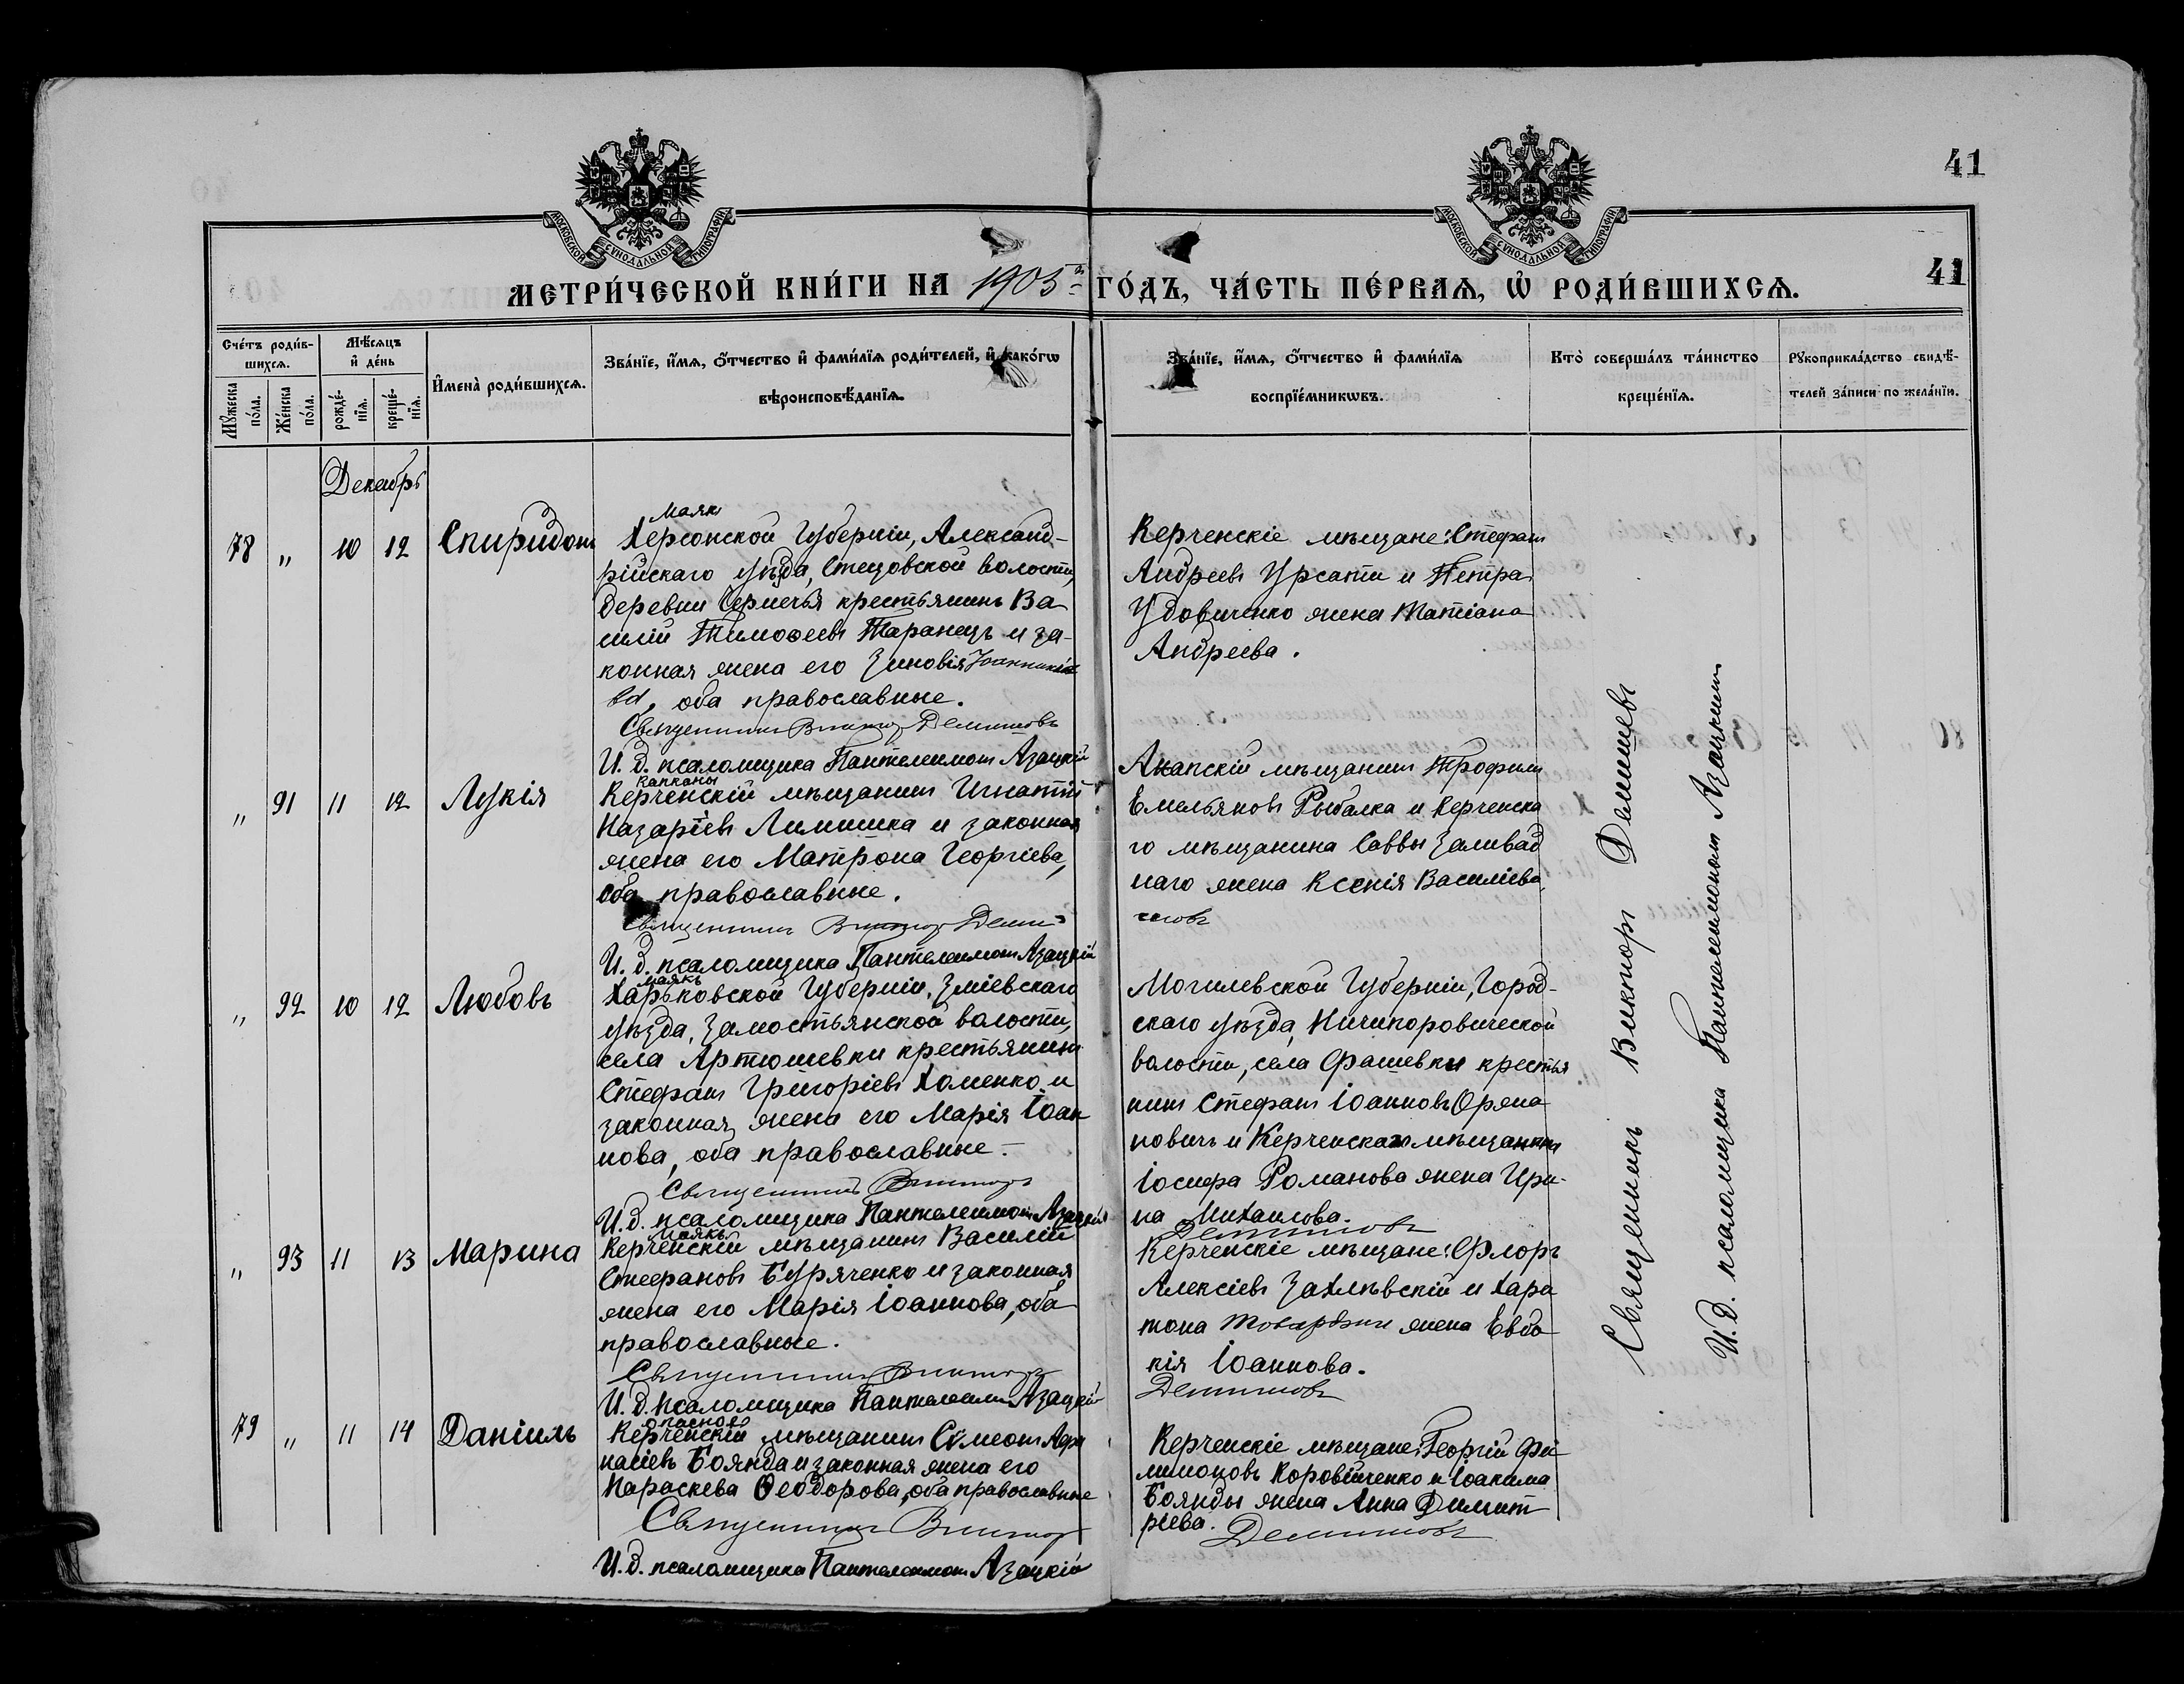 41
МОСКОВСКОЙ СѴНОДАЛЬНОЙ ТИПОГРАФІИ
МОСКОВСКОЙ СѴНОДАЛЬНОЙ ТИПОГРАФІИ
МЕТРИ́ЧЕСКОЙ КНИ́ГИ НА 1905 й ГО́ДЪ, ЧА́СТЬ ПЕ́РВАѦ, Ѽ РОДИ́ВШИХСѦ.
41
Сче́тъ роди́в-
шихсѧ.
Мꙋ́жеска по́ла.
Же́нска по́ла.
Мѣ́сѧцъ
и҆ де́нь
рожде́-нїѧ.
креще́-нїѧ.
И҆мена̀ роди́вшихсѧ.
Зва́нїе, и҆́мѧ, ѻ҆́тчество и҆ фами́лїѧ роди́телей, и҆ како́гѡ
вѣроисповѣ́данїѧ.
Зва́нїе, и҆́мѧ, ѻ҆́тчество и҆ фами́лїѧ
воспрїе́мникѡвъ.
Кто̀ соверша́лъ та́инство
креще́нїѧ.
Рꙋкоприкла́дство свидѣ́-
телей за́писи по жела́нїю.
Декабрь
78 „ 10 12 Спиридонъ
Маякъ
Херсонской Губерніи, Александ-
рійскаго уѣзда, Стецовской волости,
деревни Сермечья крестьянинъ Ва
силій Тимоѳеевъ Таранецъ и за-
конная жена его Зиновія Іоанникіе
ва, оба православные.
Священникъ Викторъ Демишевъ
И. д. псаломщика Пантелеимонъ Азацкій
Керченскіе мѣщане: Стефанъ
Андреевъ Урсати и Петра
Удовиченко жена Татіана
Андреева.
„ 91 11 12 Лукія
Капканы
Керченскій мѣщанинъ Игнатій
Назаріевъ Лимишка и законная
жена его Матрона Георгіева,
оба православные.
Священникъ Викторъ Деми-
шевъ
И. д. псаломщика Пантелеимонъ Азацкій
Анапскій мѣщанинъ Трофимъ
Емельяновъ Рыбалка и Керченска
го мѣщанина Саввы Заливад
наго жена Ксенія Василіева
„ 92 10 12 Любовь
Маякъ
Харьковской Губерніи, Зміевскаго
уѣзда, Замостьянской волости,
села Артюшевки крестьянинъ
Стефанъ Григоріевъ Хоменко и
законная жена его Марія Іоан
нова, оба православные.
Священникъ Викторъ Демишевъ
И. д. псаломщика Пантелеимонъ Азацкій
Могилевской Губерніи, Город-
скаго уѣзда, Ничипоровической
волости, села Фашевки крестья
нинъ Стефанъ Іоанновъ
новичъ и Керченскаго мѣщанина
Іосифа Романова жена Ири-
на Михаилова.
„ 93 11 13 Марина
Маякъ
Керченскій мѣщанинъ Василій
Стефановъ Буряченко и законная
жена его Марія Іоаннова, оба
православные.
Священникъ Викторъ Демишевъ
И. д. псаломщика Пантелеимонъ Азацкій
Керченскіе мѣщане: Флоръ
Алексіевъ Захлѣвскій и Хари
тона жена Евдо
кія Іоаннова.
79 „ 11 14 Даніилъ
Опасное
Керченскій мѣщанинъ Сѵмеонъ Афа
насіевъ Боянда и законная жена его
Параскева Ѳеодорова, оба православные
Священникъ Викторъ Демишевъ
И. д. псаломщика Пантелеимонъ Азацкій
Керченскіе мѣщане: Георгій Фи
лимоновъ Коровійченко и Іоакима
Боянды жена Анна Димит
ріева.
Священникъ Викторъ Демишевъ
И. д. псаломщика Пантелеимонъ Азацкій